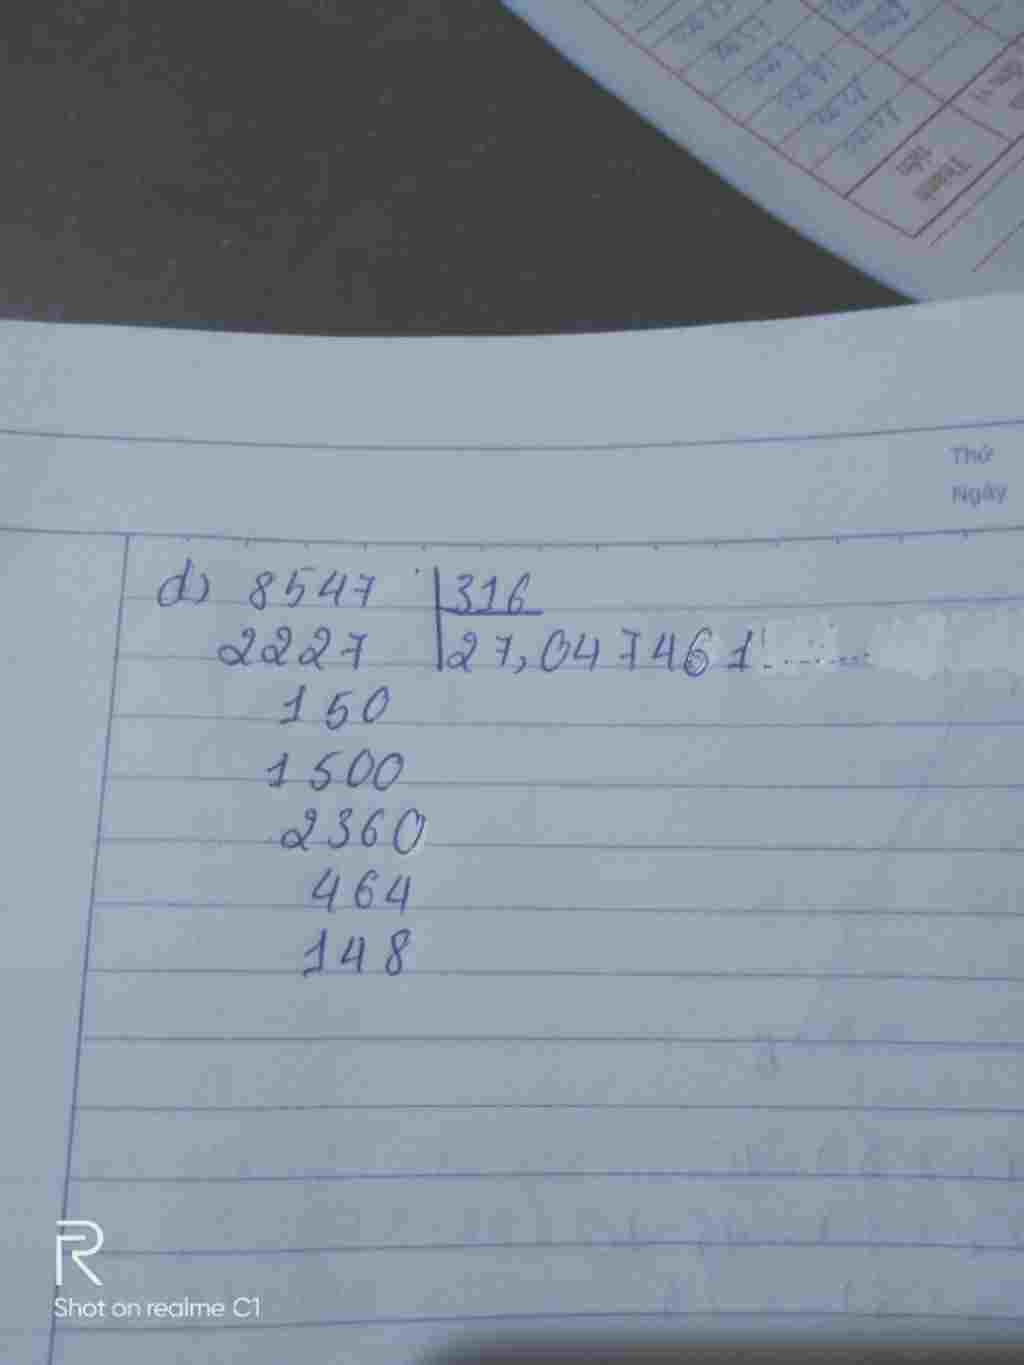 Thành
tiền
Thứ
Ngày
d) 8547 316
2227 27,047461...........
150
1500
2360
464
148
R
Shot on realme C1